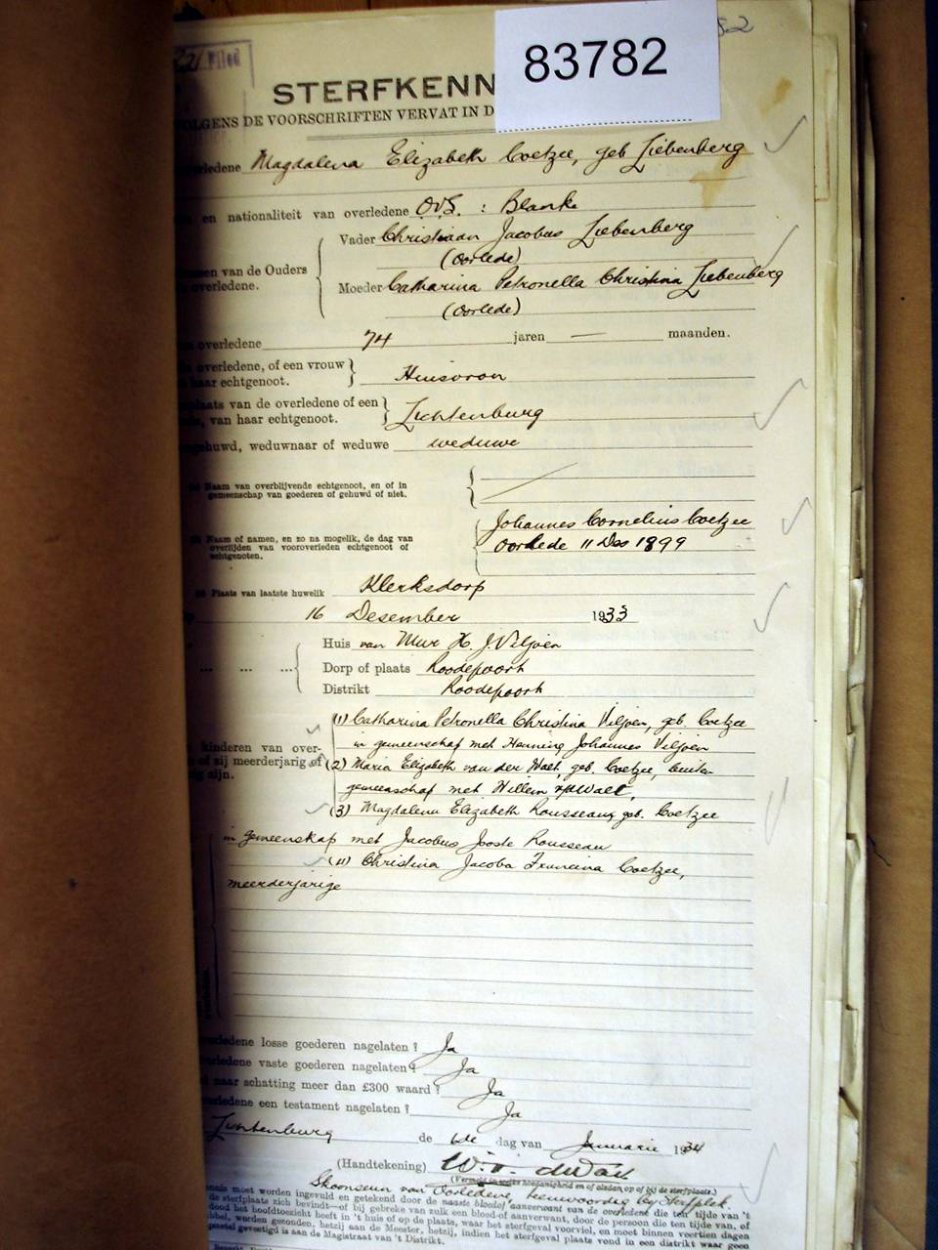 Filed
83782
STERFKENN
OLGENS DE VOORSCHRIFTEN VERVAT IN D
rledene Magdalena Elizabeth Coetzee, geb Liebenberg
en nationaliteit van overledene O.V.S. : Blanke
Vader Christiaan Jacobus Liebenberg
(Oorlede)
men van de Ouders
overledene.
Moeder Catharina Petronella Christina Liebenberg
(Oorlede)
overledene 74 jaren — maanden.
overledene, of een vrouw
haar echtgenoot. Huisvrou
plaats van de overledene of een
van haar echtgenoot. Lichtenburg
gehuwd, weduwnaar of weduwe weduwe
Naam van overblijvende echtgenoot, en of in
gemeenschap van goederen of gehuwd of niet.
Naam of namen, en zo na mogelik, de dag van
overlijden van vooroverleden echtgenoot of
echtgenoten.
Johannes Cornelius Coetzee
oorlede 11 Des 1899
Plaats van laatste huwelik Klerksdorp
16 Desember 1933
Huis van Mnr H. J. Viljoen
Dorp of plaats Roodepoort
Distrikt Roodepoort
kinderen van over-
of zij meerderjarig of
ig zijn.
(1) Catharina Petronella Christina Viljoen, geb Coetzee
in gemeenschap met Henning Johannes Viljoen
(2) Maria Elizabeth van der Walt, geb. Coetzee, buiten
gemeenschap met Willem v/d Walt,
(3) Magdalena Elizabeth Rousseau, geb. Coetzee
in gemeenskap met Jacobus Jooste Rousseau
(4) Christina Jacoba Francina Coetzee,
meerderjarige
erledene losse goederen nagelaten? Ja
rledene vaste goederen nagelaten? Ja
naar schatting meer dan £300 waard? Ja
rledene een testament nagelaten? Ja
Lichtenburg de 6de dag van Januarie 1934
(Handtekening)
Skoonseun van Oorledene, teenwoordig by sterfplek
nnis moet worden ingevuld en getekend door de naaste bloed-aanverwant van de overledene die ten tijde van 't
de sterfplaats zich bevindt—of bij gebreke van zulk een bloed-of aanverwant, door de persoon die ten tijde van, of
dood het hoofdtoezicht heeft in 't huis of op de plaats, waar het sterfgeval voorviel, en moet binnen veertien dagen